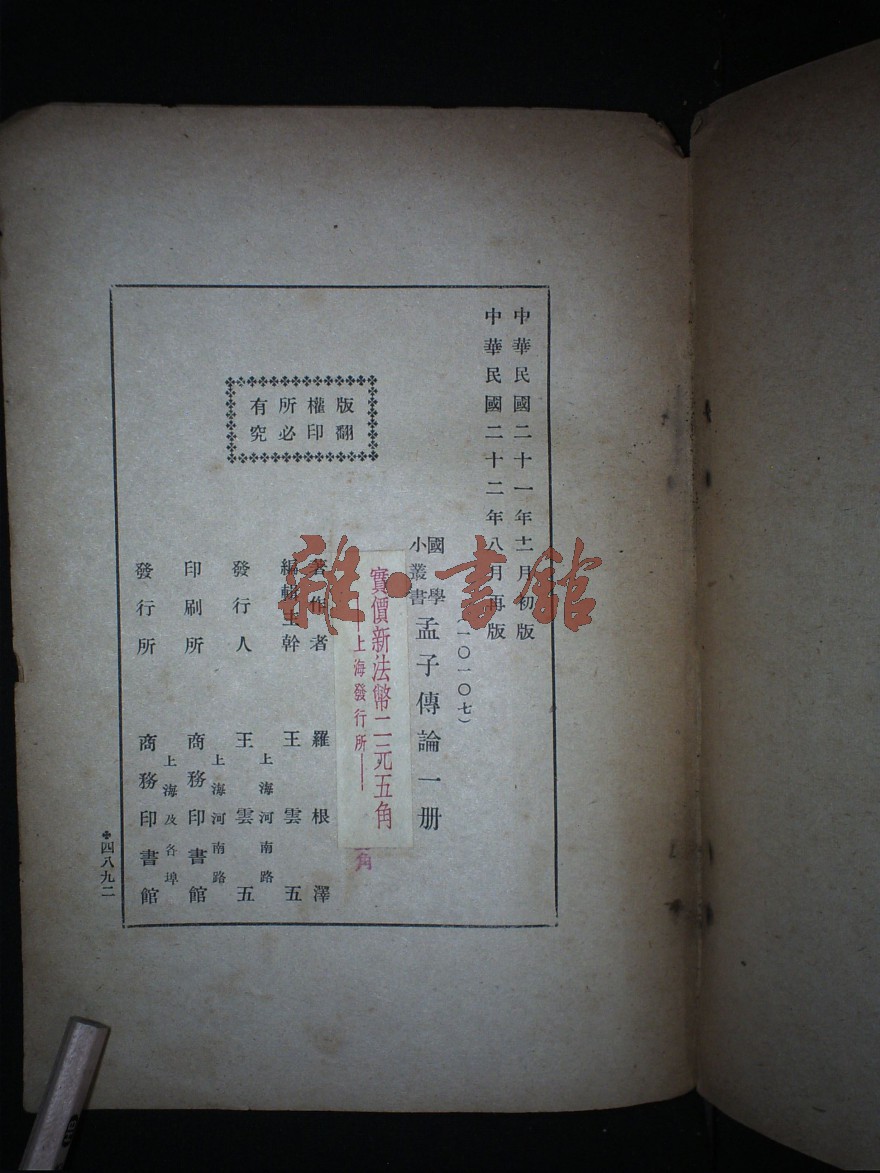 中華民國二十一年十二月初版
中華民國二十二年八月再版
(一〇一〇七)
國學
小叢書
孟子傳論一册
實價新法幣二元五角
上海發行所
角
著作者 羅根澤
編輯主幹 王雲五
上海河南路
發行人 王雲五
上海河南路
印刷所 商務印書館
上海及各埠
發行所 商務印書館
版權所有
翻印必究
四八九二
雜·書館